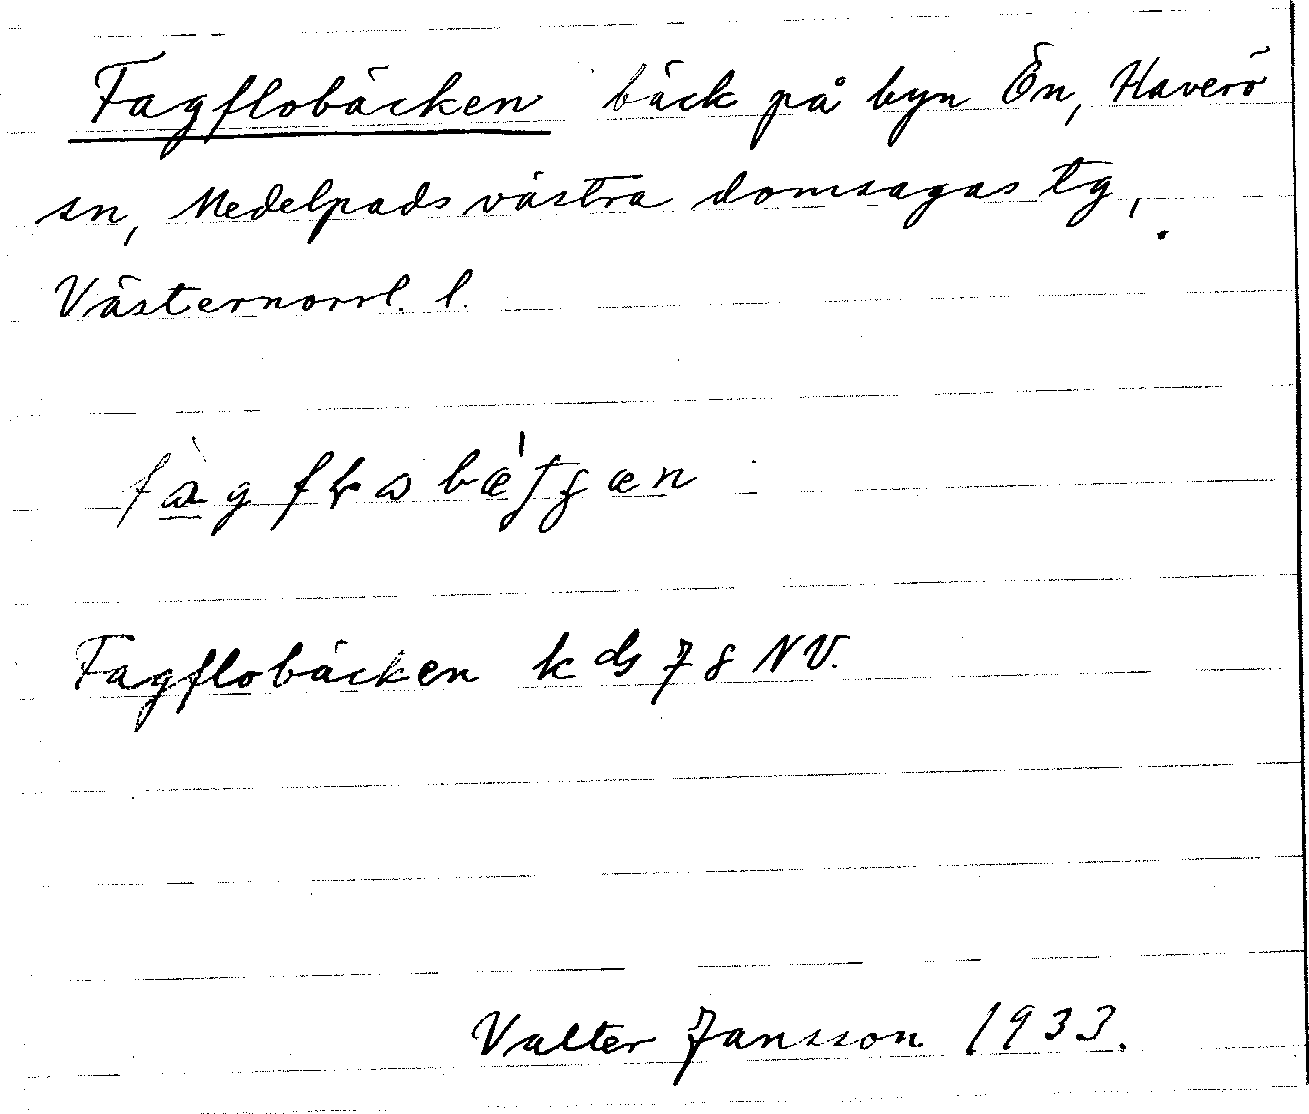 Fagflobäcken bäck på byn Ön, Haverö
sn, Medelpads västra domsagas tg,
Västernorrl. l.
Fagflobäcken k ds 78 NV.
Valter Jansson 1933.